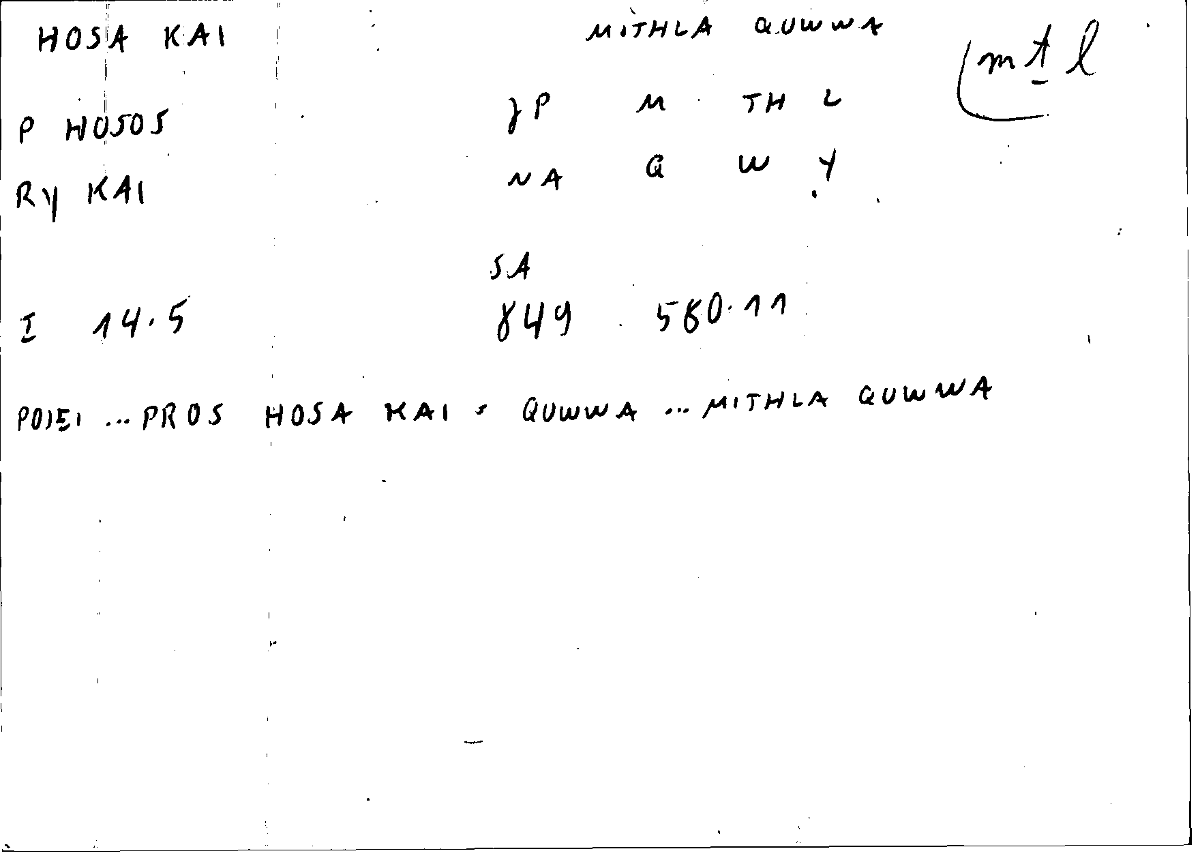 HOSA KAI MITHLA QUWWA
mtl
P HOSOS JP M TH L
RY KAI NA Q W Y
SA
I 14.5 849 580.11
POIEI ... PROS HOSA KAI = QUWWA ... MITHLA QUWWA